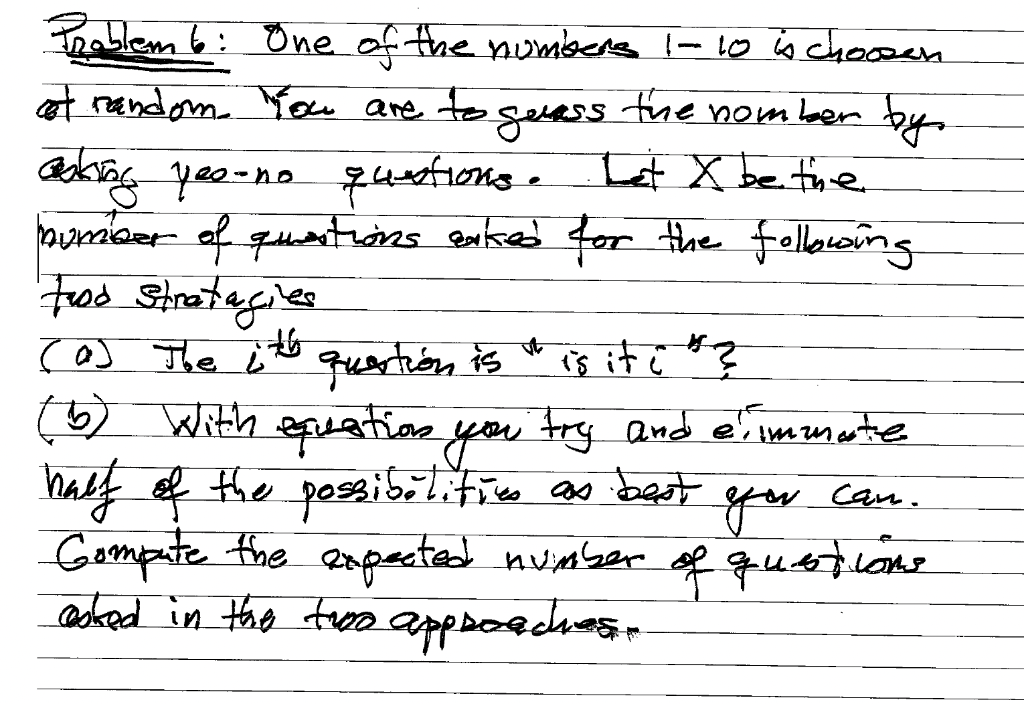 Problem 6: One of the numbers 1-10 is choosen
at random. You are to guess the number by
asking yes-no questions. Let X be the
number of questions asked for the following
two stratagies
(a) The ith question is "is it i"?
(b) With equestion you try and eliminate
half of the possibilities as best you can.
Compute the expected number of questions
asked in the two approaches.